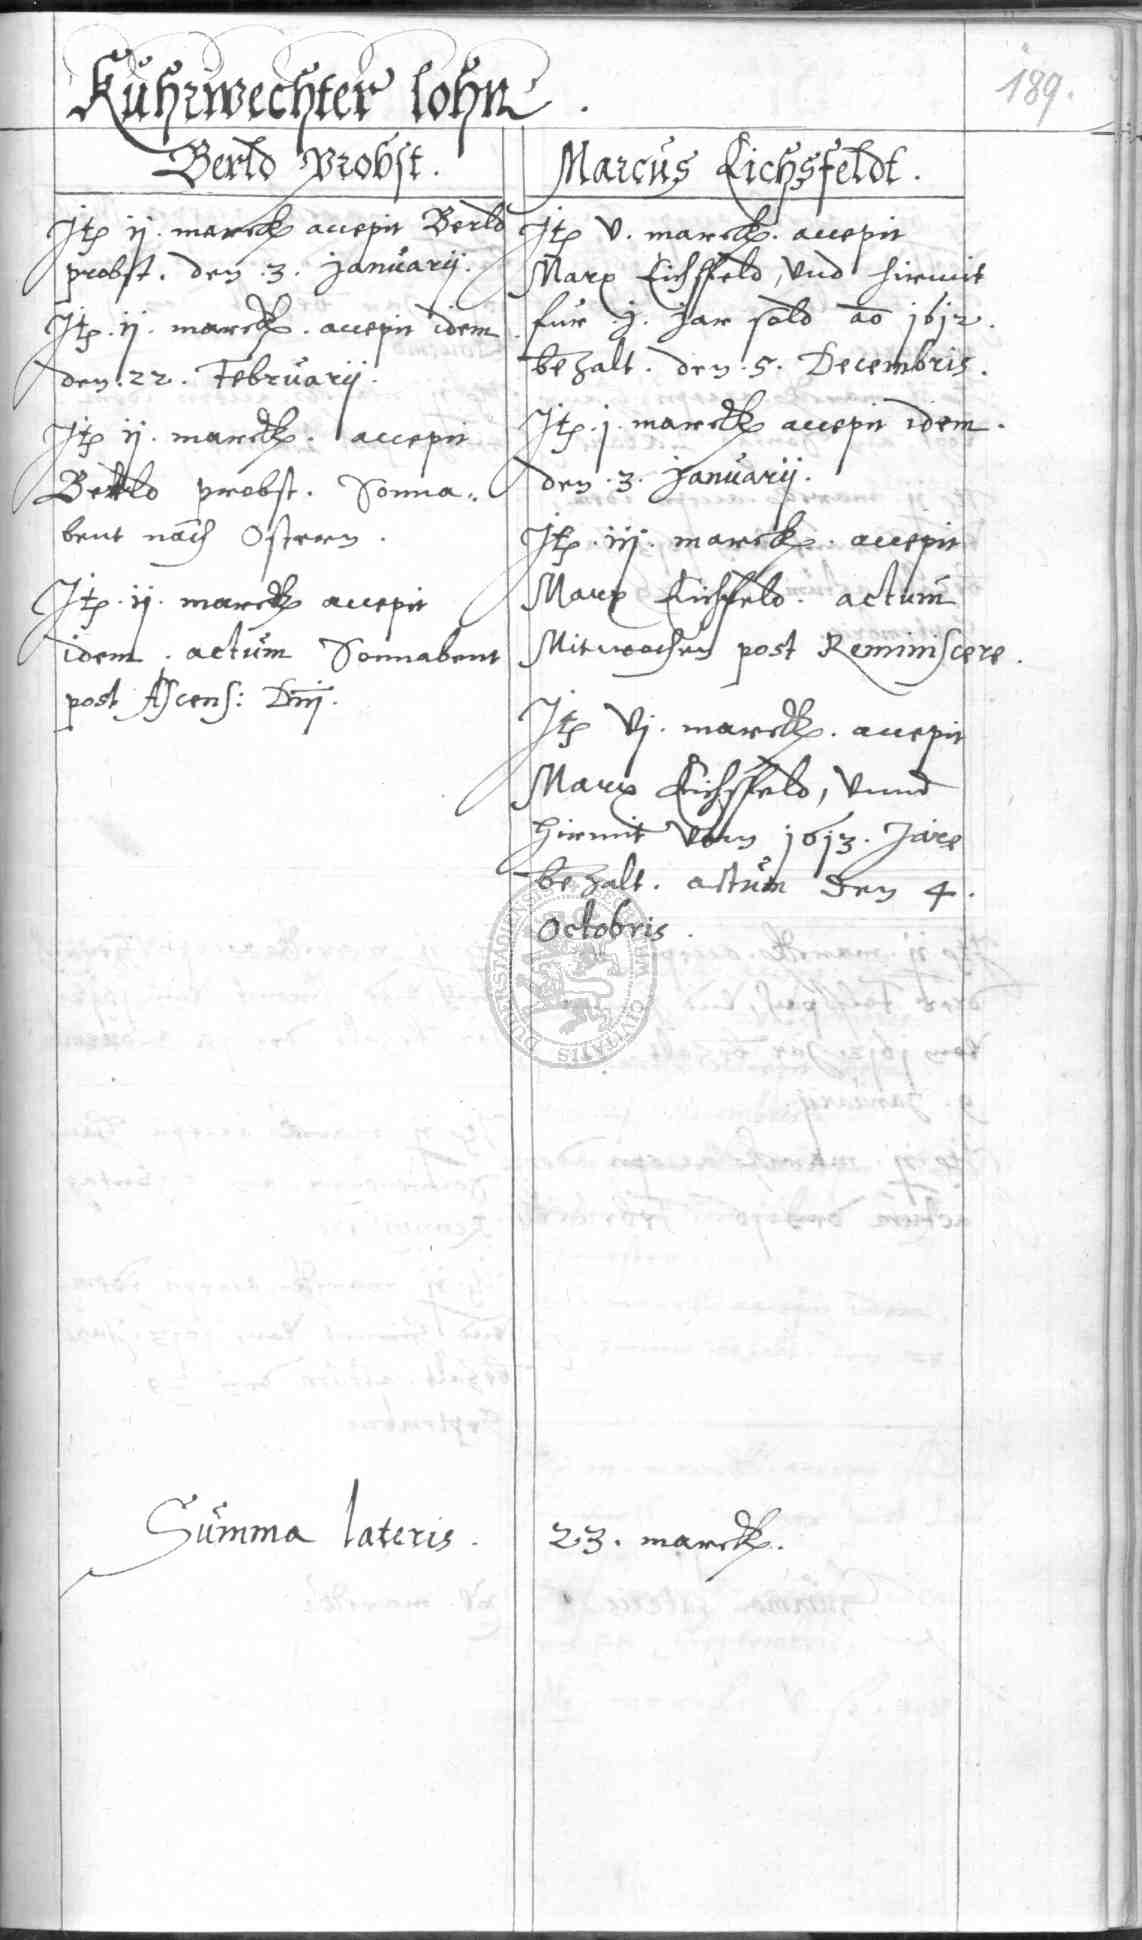 189.
Kuhrwechter lohn.
Berld Probst.
Itz ij. marck accepit Berld
probst. den .3. Januarij.
Itz .ij. marck. accepit idem
den .22. Februarij.
Itz ij. marck. accepit
Berld probst. Sonna-
bent nach Ostern.
Itz .ij. marck accepit
idem. actum Sonnabent
post Ascens: Dnj.
Marcus Eichsfeldt.
Itz v. marck. accepit
Marx Eichsfeld, vnd hiermit
fur .j. Jar sold ao 1612.
bezalt. den .5. Decembris.
Itz .j. marck accepit idem.
den .3. Januarij.
Itz .iij. marck. accepit
Marx Eichsfeld. actum
Mitwochen post Reminiscere.
Itz vj. marck. accepit
Marx Eichsfeld, vnnd
hiermit vom 1613. Jare
bezalt. actum den 4.
Octobris.
Summa lateris. 23. marck.